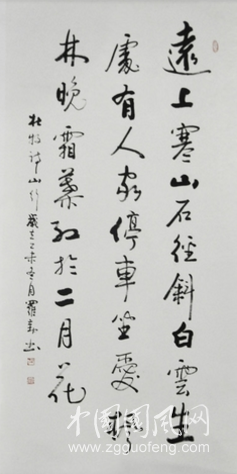 遠上寒山石徑斜白雲生
處有人家停車坐愛楓
林晚霜葉紅於二月花
杜牧詩山行歲在乙未冬月羅
中国国风网
www.zgguofeng.com